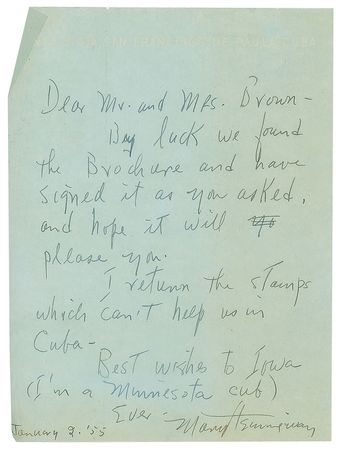 SAN FRANCISCO DE PAULA, CUBA
Dear Mr. and Mrs. Brown-
By luck we found
the Brochure and have
signed it as you asked,
and hope it will
please you.
I return the stamps
which can't help us in
Cuba-
Best wishes to Iowa
(I'm a Minnesota cub)
Ever-
Mary Hemingway
January 2. '55